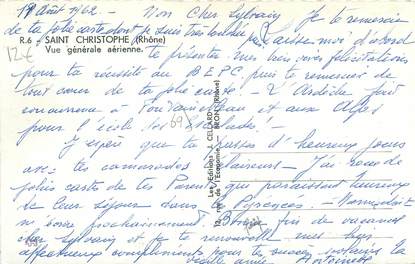 19 Août 1962 - Mon Cher Sylvain, Je te remercie
de ta jolie carte dont je suis très
R.6 - SAINT CHRISTOPHE (Rhône)
Vue générale aérienne.
12€
Laisse-moi d'abord
te présenter mes bien vives félicitations
pour ta réussite au BEPC puis te remercier de
tout cœur de ta jolie carte - L'Ardèche fait
concurrence à Fontainebleau et aux Alpes
pour l'école
(69)
J'espère que tu passes d'heureux jours
avec tes camarades - J'ai reçu de
jolies cartes de tes Parents qui paraissent heureux
de leur séjour dans les Pyrénées -
m'écrire prochainement. Bonne fin de vacances
cher Sylvain et je te renouvelle mes bien
affectueux compliments pour ton succès
Les Editions J. CELLARD
de l'Economie - BRON (Rhône)